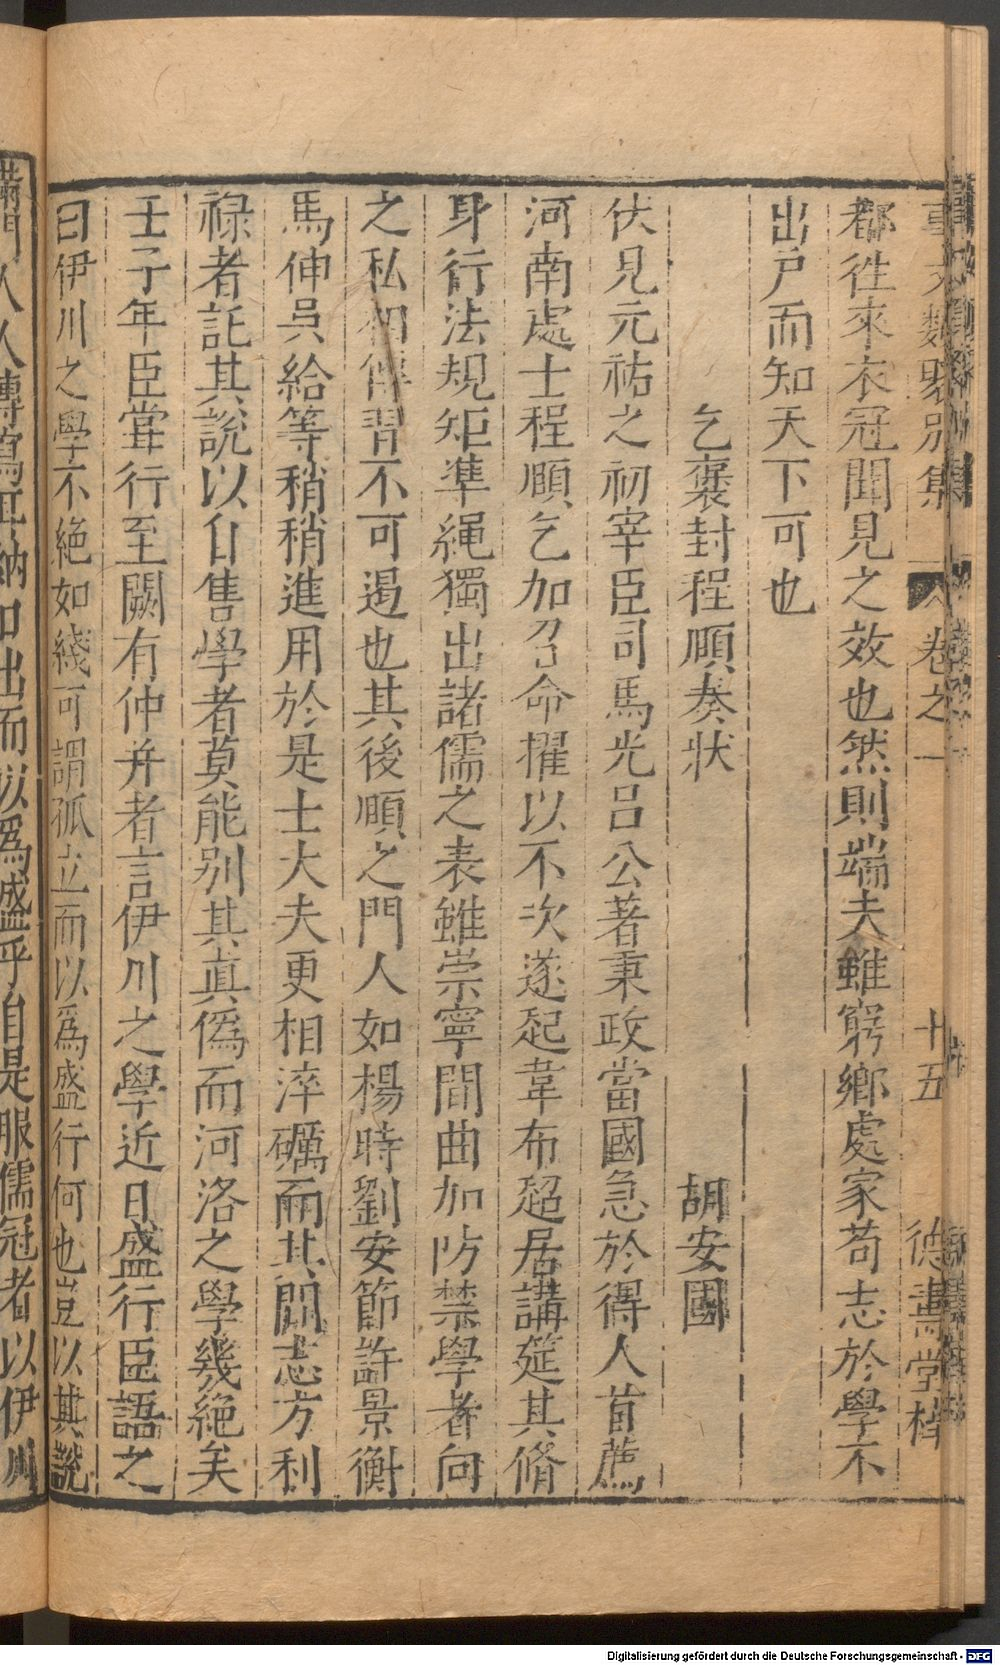 事文類聚別集 卷之一 十五 德壽堂梓
都往來衣冠聞見之效也然則端夫雖窮鄉處家苟志於學不
出戶而知天下可也
乞褒封程頤奏狀 胡安國
伏見元祐之初宰臣司馬光呂公著秉政當國急於得人首薦
河南處士程頤乞加召命擢以不次遂起韋布超居講筵其脩
身行法規矩準繩獨出諸儒之表雖崇寧間曲加防禁學者向
之私相傳習不可遏也其後頤之門人如楊時劉安節許景衡
馬伸吳給等稍稍進用於是士大夫更相淬礪而其間志方利
祿者託其說以自售學者莫能別其眞偽而河洛之學幾絕矣
壬子年臣嘗行至闕有仲并者言伊川之學近日盛行臣語之
曰伊川之學不絕如綫可謂孤立而以爲盛行何也豈以其說
滿門人人傳寫耳納口出而以爲盛乎自是服儒冠者以伊川
Digitalisierung gefördert durch die Deutsche Forschungsgemeinschaft - DFG